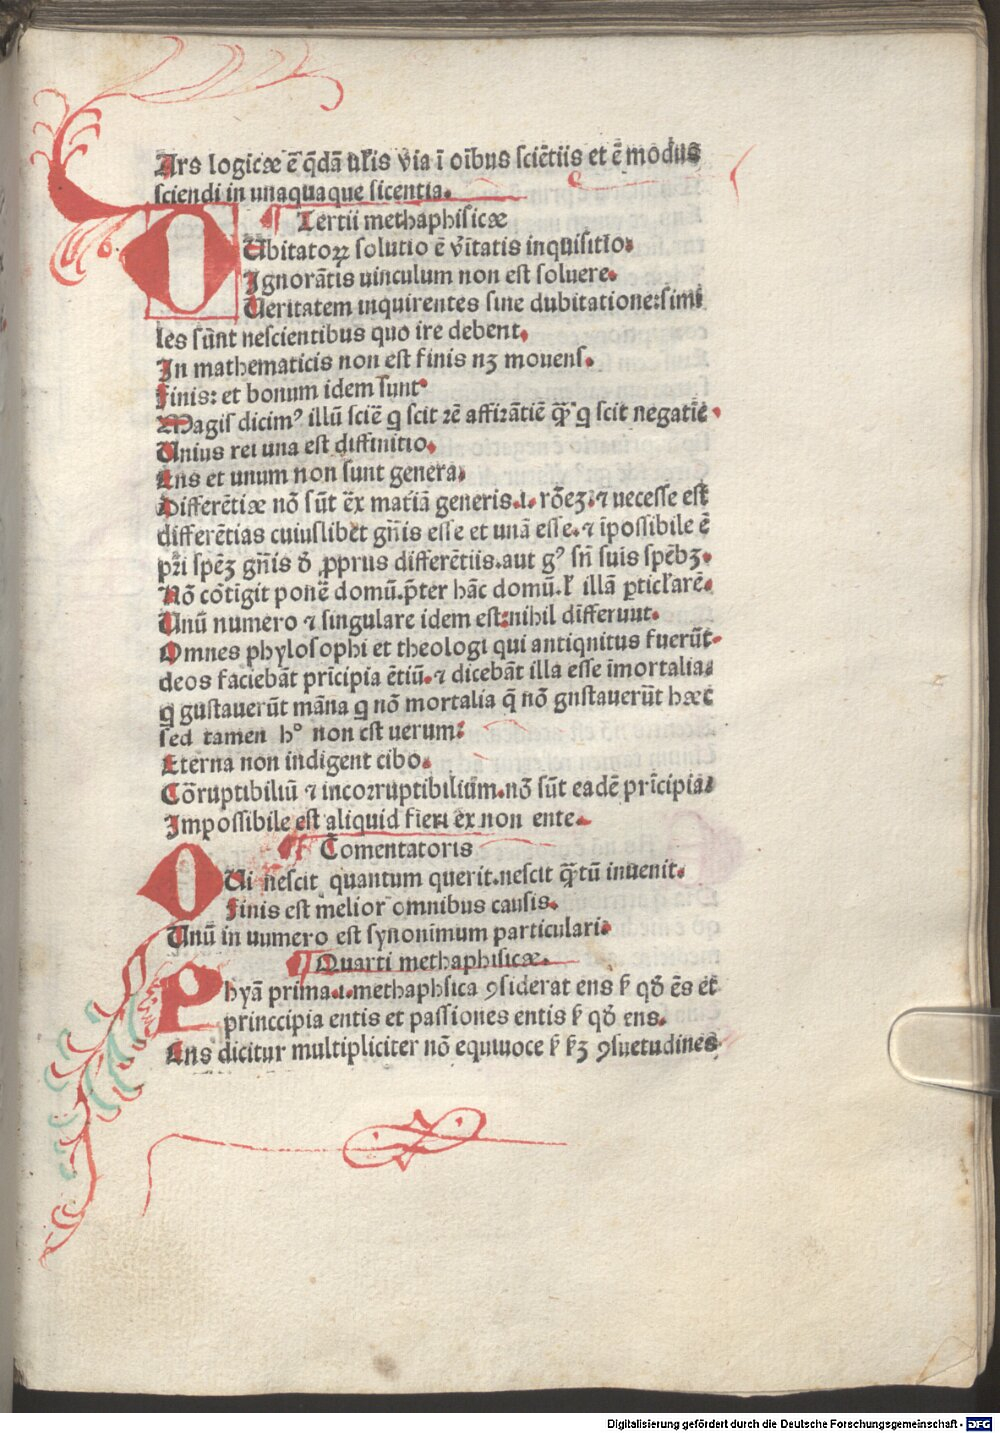 Ars logicæ ē q̄dā ul̄is via ī oībus sciētiis et ē modus
sciendi in unaquaque sicentia.
¶ Tertii methaphisicæ
DUbitatoꝝ solutio ē v̄itatis inquisitio.
Ignorātis uinculum non est soluere.
Ueritatem inquirentes sine dubitatione:simi
les sūnt nescientibus quo ire debent.
In mathematicis non est finis nꝫ mouens.
Finis: et bonum idem sunt
Magis dicimꝰ illū sciē q scit rē affirātiē q̄ꝫ q scit negatiē.
Unius rei una est diffinitio.
Ens et unum non sunt genera.
Differētiæ nō sūt ēx matiā generis.i. rōeꝫ.⁊ necesse est
differētias cuiuslibet gn̄is esse et unā esse.⁊ īpossibile ē
p̄ri spēꝫ gn̄is d̄ ꝓpriis differētiis.aut gꝰ sn̄ suis spēbꝫ.
Nō cōtigit ponē domū.p̄ter hāc domū.ł illā ꝑticl̄arē.
Unū numero ⁊ singulare idem est:nihil dīfferunt.
Omnes phylosophi et theologi qui antiqnitus fuerūt.
deos faciebāt prīcipia ētiū.⁊ dicebāt illa esse īmortalia.
q gustauerūt māna q nō mortalia q̄ nō gnstauerūt hæc
sed tamen hº non est uerum:
Eterna non indigent cibo.
Cōrruptibiliū ⁊ incorruptibilium.nō sūt eadē prīcipia.
Impossibile est aliquid fieri ex non ente.
¶ Comentatoris
QUi nescit quantum querit.nescit q̄ꝫtū inuenit.
Finis est melior omnibus causis.
Unū in uumero est synonimum particulari.
¶ Quarti methaphisicæ.
Phyā prima.i.methaphsica ꝯsiderat ens ẜ qd̄ ēs et
princcipia entis et passiones entis ẜ qd̄ ens.
Ens dicitur multipliciter nō equiuoce ẜ ẜꝫ ꝯsuetudines
Digitalisierung gefördert durch die Deutsche Forschungsgemeinschaft - DFG